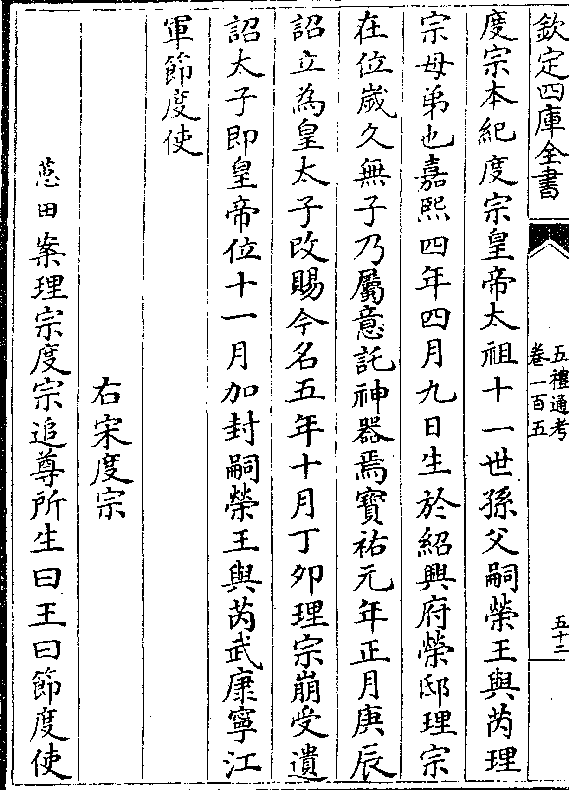 欽定四庫全書
五禮通考
卷一百五
五十二
度宗本紀度宗皇帝太祖十一世孫父嗣榮王與芮理
宗母弟也嘉熙四年四月九日生於紹興府榮邸理宗
在位嵗久無子乃屬意託神器焉寳祐元年正月庚辰
詔立為皇太子改賜今名五年十月丁夘理宗崩受遺
詔太子即皇帝位十一月加封嗣榮王與芮武康寧江
軍節度使
右宋度宗
蕙田案理宗度宗追尊所生曰王曰節度使